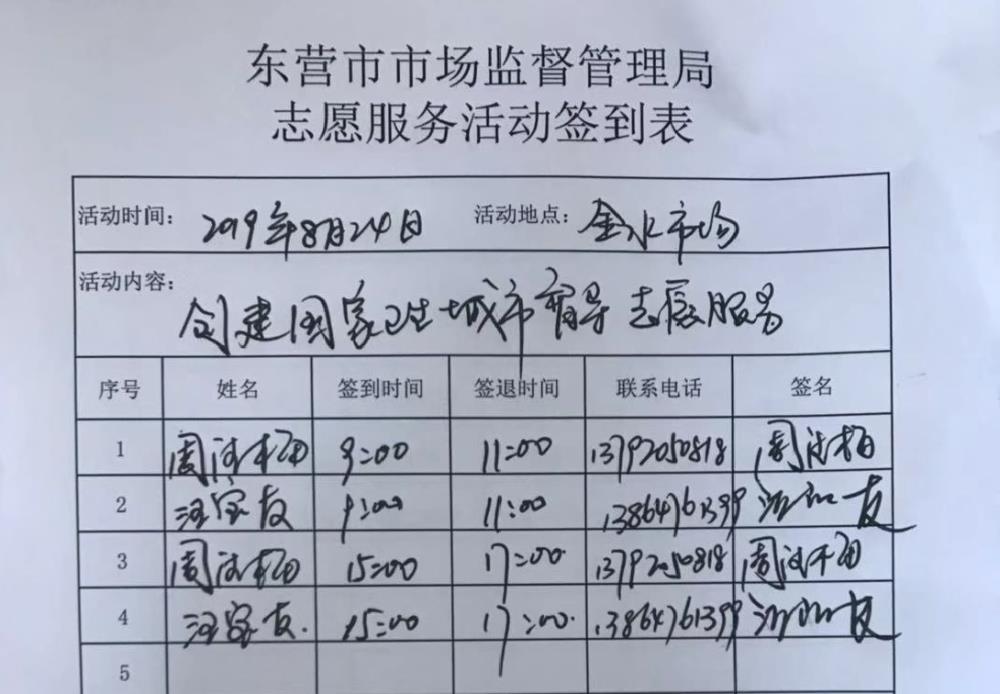 东营市市场监督管理局
志愿服务活动签到表
活动时间: 2019年8月24日 活动地点: 金水市场
活动内容:
创建国家卫生城市督导志愿服务
序号 姓名 签到时间 签退时间 联系电话 签名
1 周 9:00 11:00 13792050818 周
2 汪家友 9:00 11:00 13864761399 友
3 周 15:00 17:00 13792050818 周
4 汪家友 15:00 17:00 13864761399 友
5